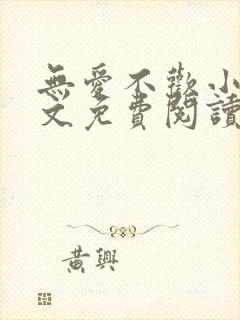 無愛不歡小
文免費閱讀
黃興